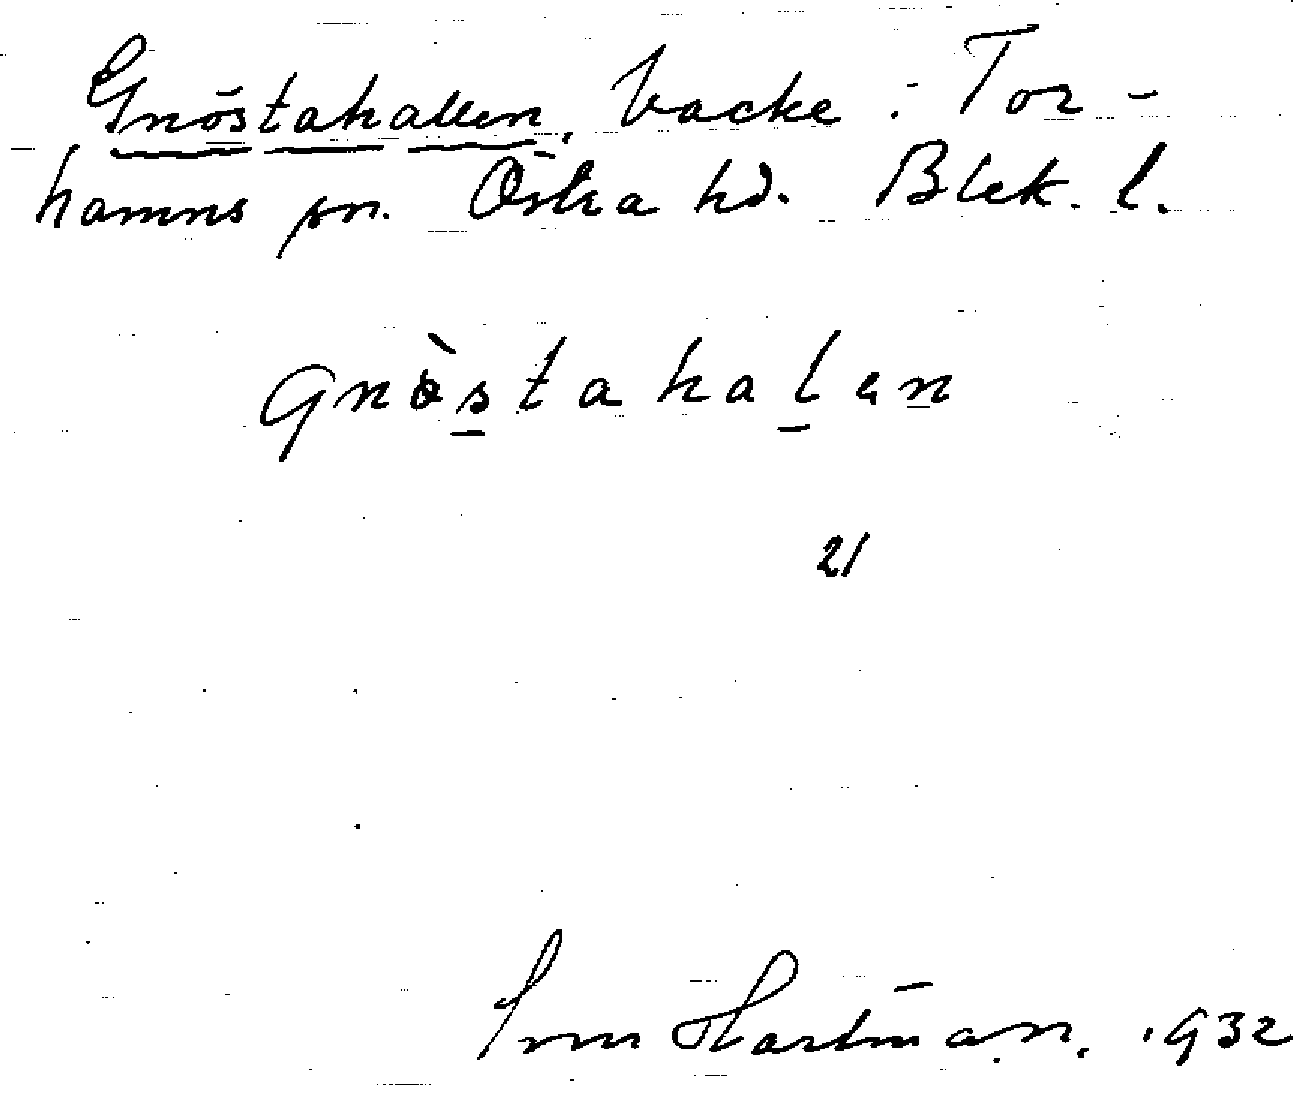 Gnöstahallen, backe i Tor-
hamns sn. Östra hd. Blek. l.
gnòstahalen
21
Hartman. 1932